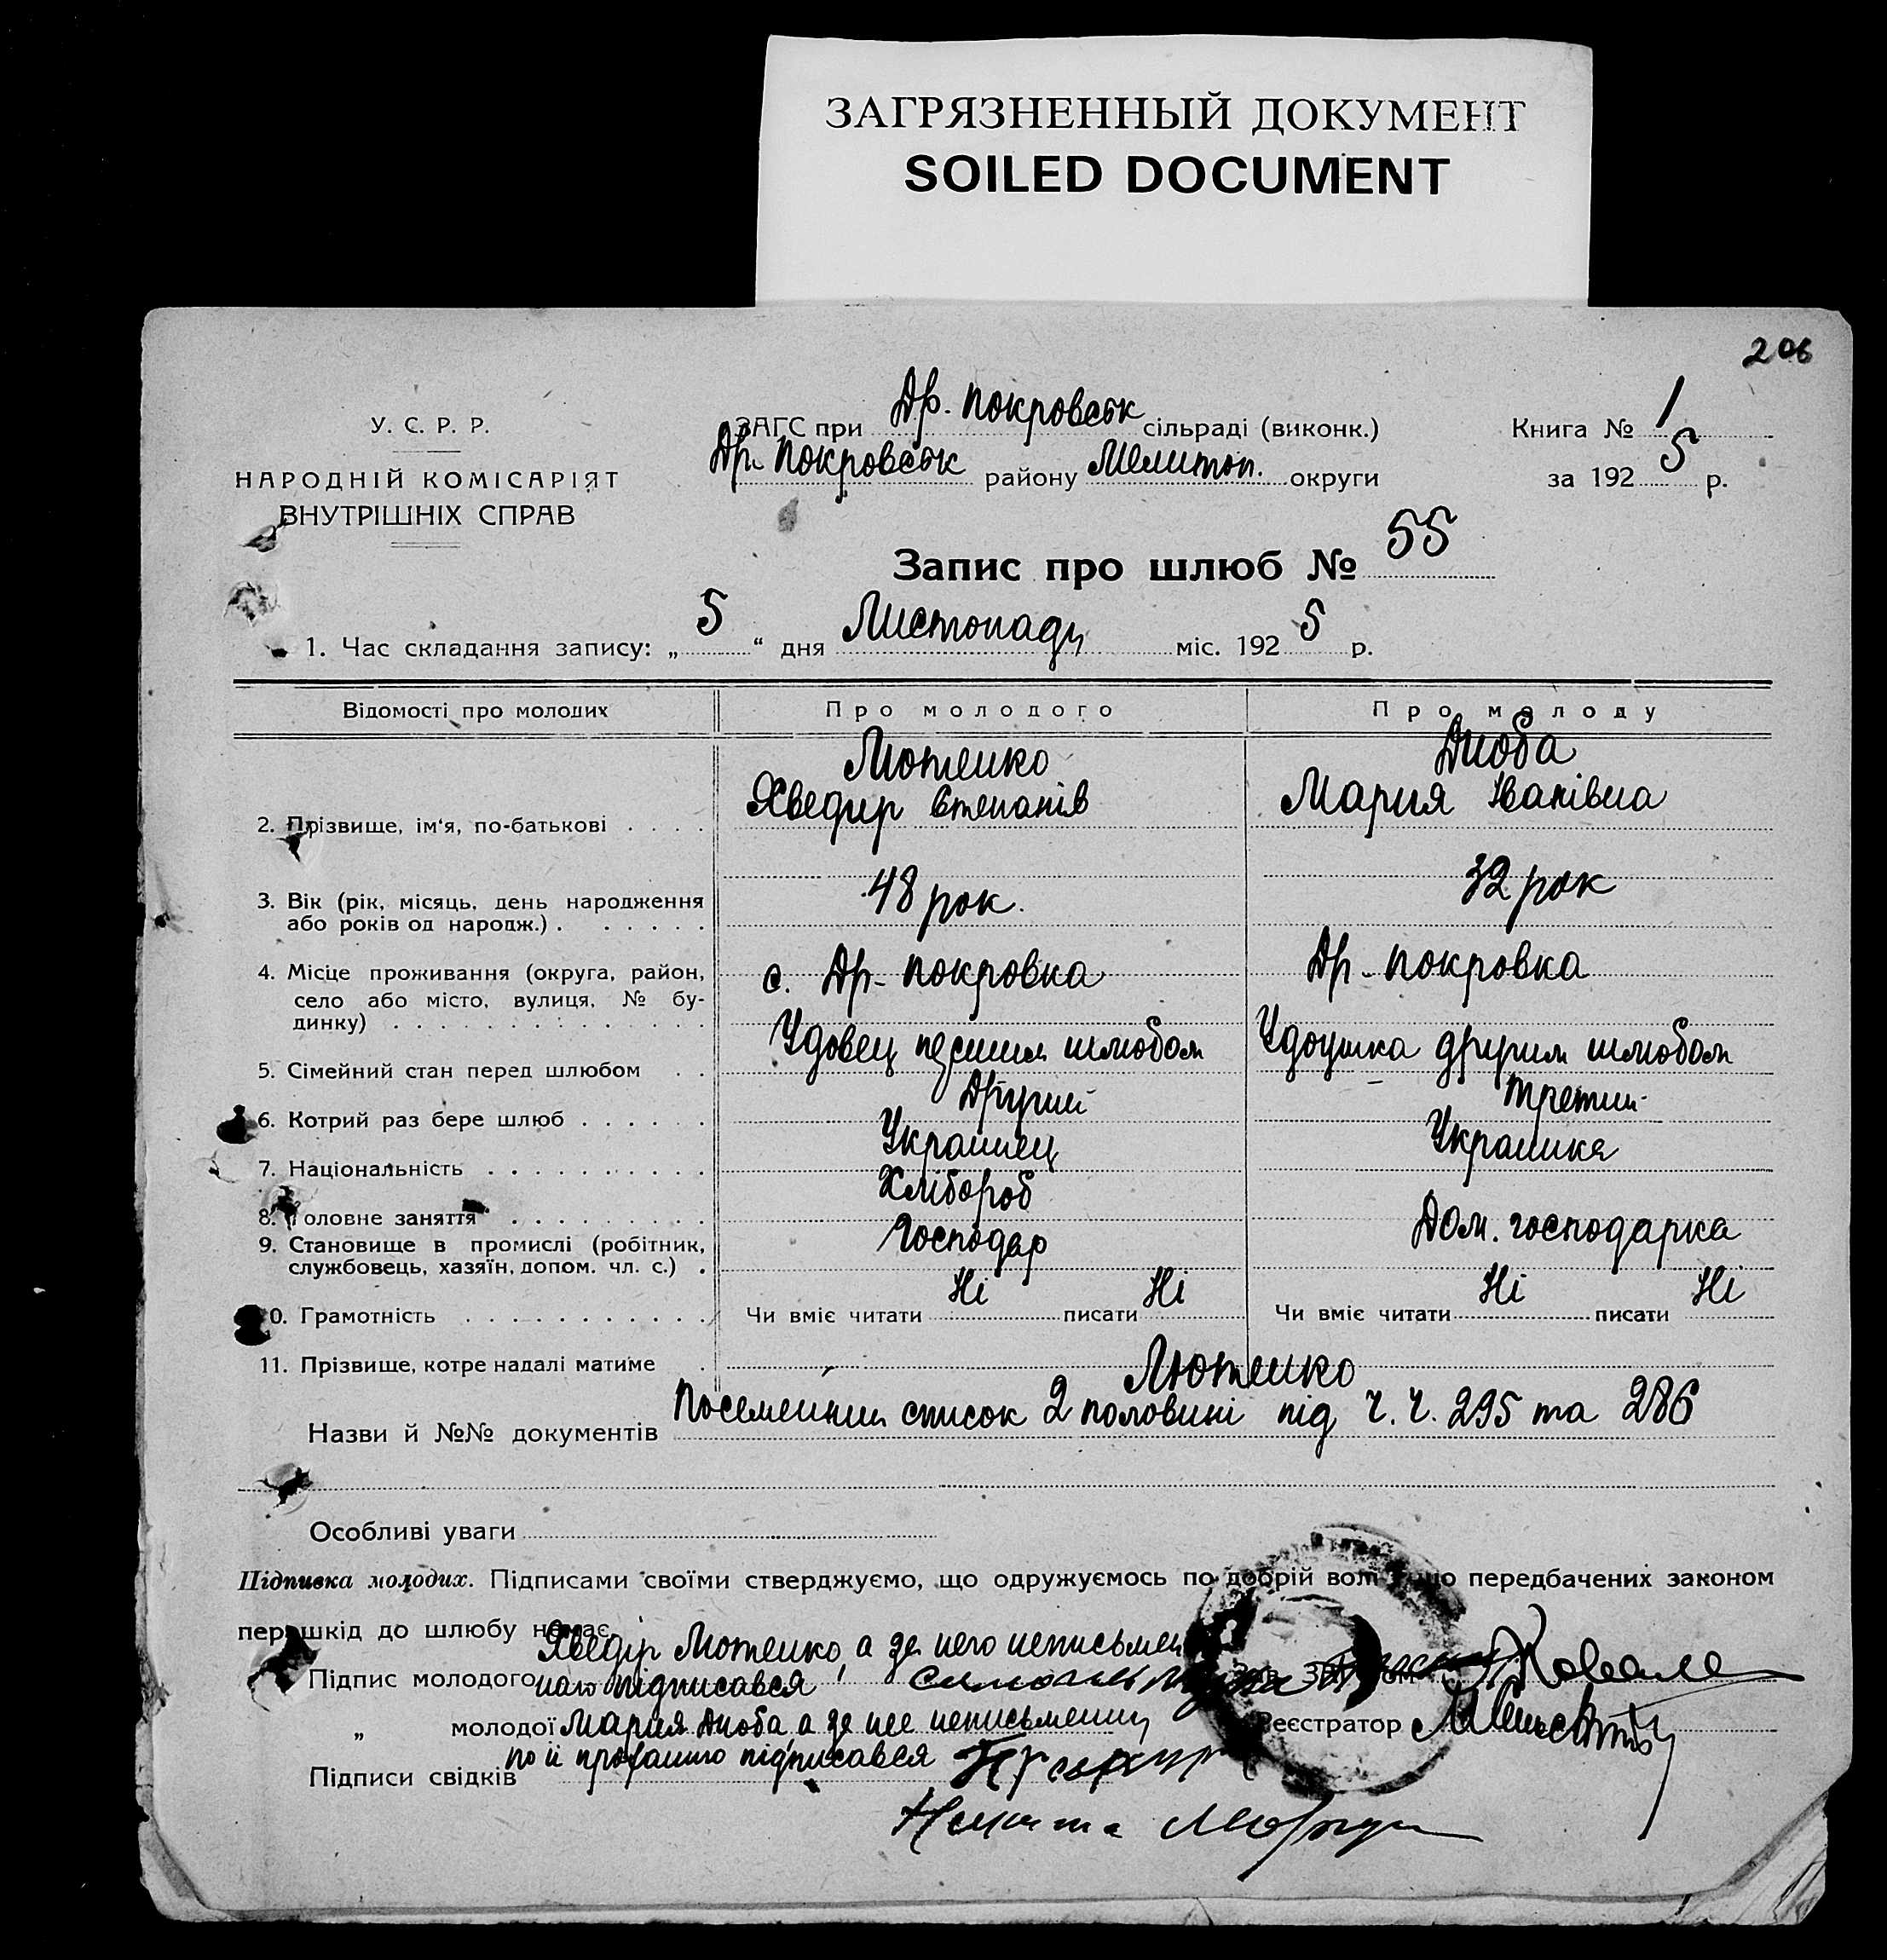 ЗАГРЯЗНЕННЫЙ ДОКУМЕНТ
SOILED DOCUMENT
206
У. С. Р. Р.
НАРОДНІЙ КОМІСАРІЯТ
ВНУТРІШНІХ СПРАВ
ЗАГС при Др. Покровськ сільраді (виконк.)
Др. Покровськ району Мелитоп. округи
Книга № 1
за 1925 р.
Запис про шлюб № 55
1. Час складання запису: „ 5 “ дня Листопаду міс. 1925 р.
Відомості про молодих Про молодого Про молоду
Лютенко Дзюба
2. Прізвище, ім'я, по-батькові . . . . Хведир Степанів Мария Іванівна
3. Вік (рік, місяць, день народження 48 рок. 32 рок
або років од народж.) . . . . . .
4. Місце проживання (округа, район, с. Др-Покровка Др-Покровка
село або місто, вулиця, № бу-
динку) . . . . . . . . . . . .
5. Сімейний стан перед шлюбом . . Удовец шлюбом Удоушка другим шлюбом
6. Котрий раз бере шлюб . . . . . . Другий Третий
7. Національність . . . . . . . . . . Украинец Украинка
8. Головне заняття . . . . . . . . . Хлібороб
9. Становище в промислі (робітник, Господар Дом. господарка
службовець, хазяїн, допом. чл. с.) .
10. Грамотність . . . . . . . . . . . Чи вміє читати Ні писати Ні Чи вміє читати Ні писати Ні
11. Прізвище, котре надалі матиме . Лютенко
Назви й №№ документів Посемейний список 2 половині під ч. ч. 295 та 286
Особливі уваги
Підписка молодих. Підписами своїми стверджуємо, що одружуємось по добрій волі що передбачених законом
перешкід до шлюбу немає.
Хведір Лютенко, а за него неписьмен
Підпис молодого ного підписався
„ молодої Мария Дзюба а за нее неписьменну
Реєстратор
по її проханню підписався
Підписи свідків
Никита